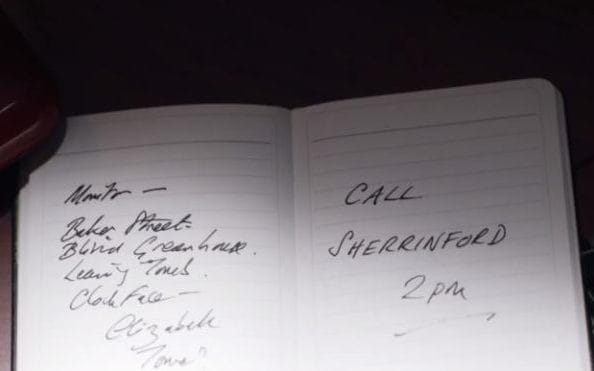 Monitor —
Baker Street.
Blind Greenhouse.
Leaning Tomb.
Clock Face —
Elizabeth
Tower?
CALL
SHERRINFORD
2 pm